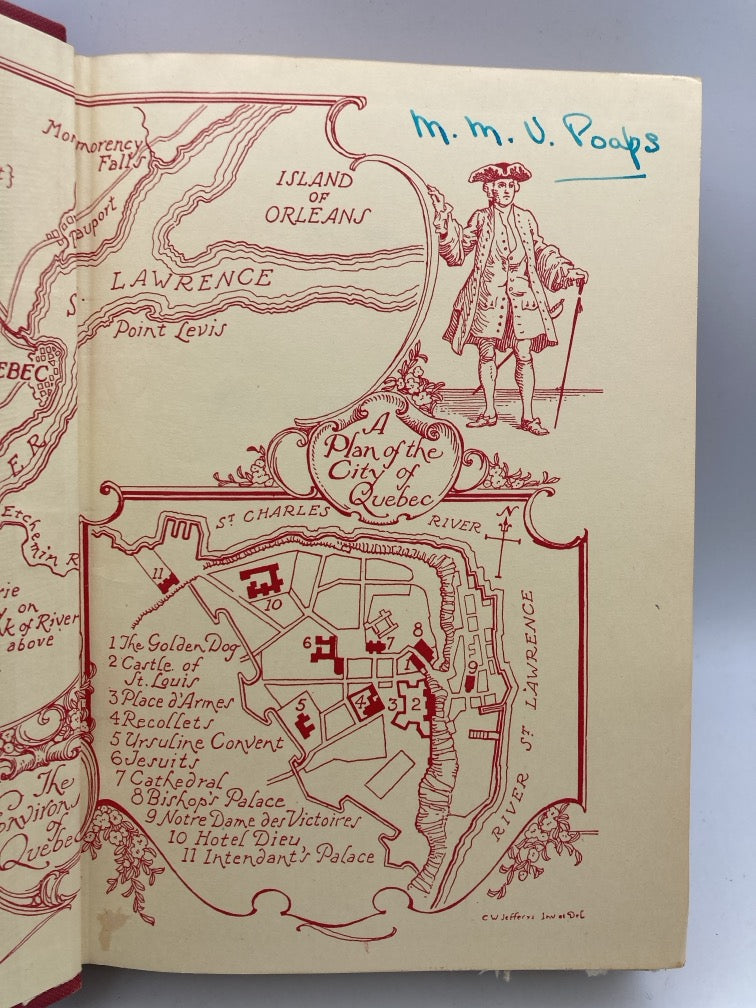 M. M. V. Poaps
Montmorency
Falls
ISLAND
OF
ORLEANS
ST LAWRENCE
Point Levis
A
Plan of the
City of
Quebec
ST CHARLES RIVER
N
11
10
6
7
8
1
9
5
4
3
2
RIVER ST LAWRENCE
1 The Golden Dog
2 Castle of
St. Louis
3 Place d'Armes
4 Recollets
5 Ursuline Convent
6 Jesuits
7 Cathedral
8 Bishop's Palace
9 Notre Dame des Victoires
10 Hotel Dieu
11 Intendant's Palace
EBEC
ER
Etchemin R
y on
k of River
above
The
Environs
of
Quebec
C W Jefferys Inv et Del